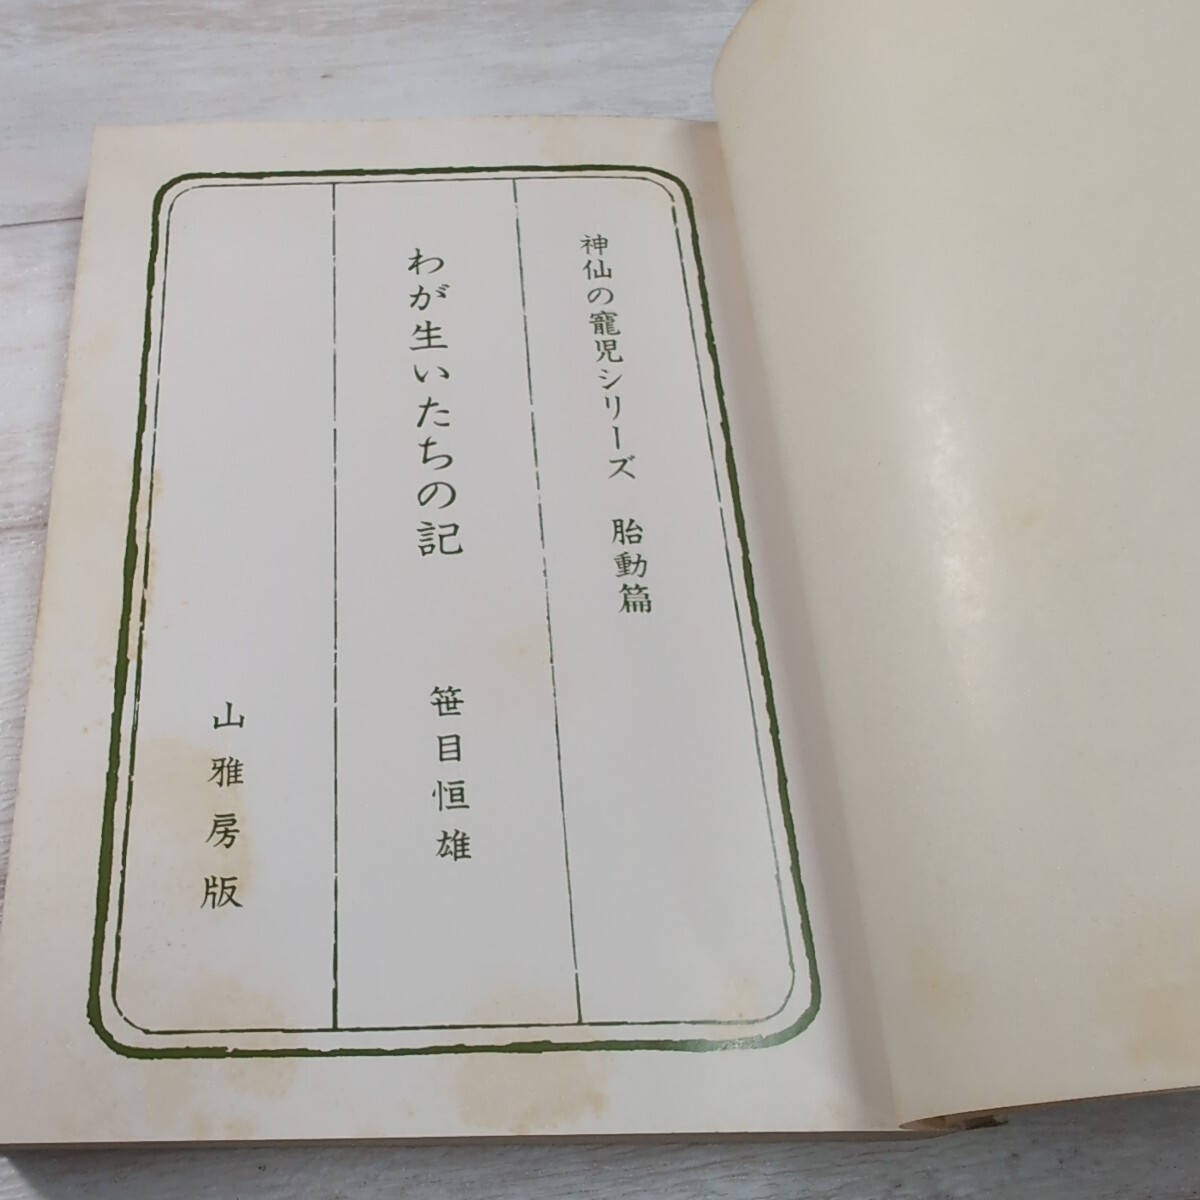 神仙の寵児シリーズ 胎動篇
わが生いたちの記 笹目恒雄
山雅房版